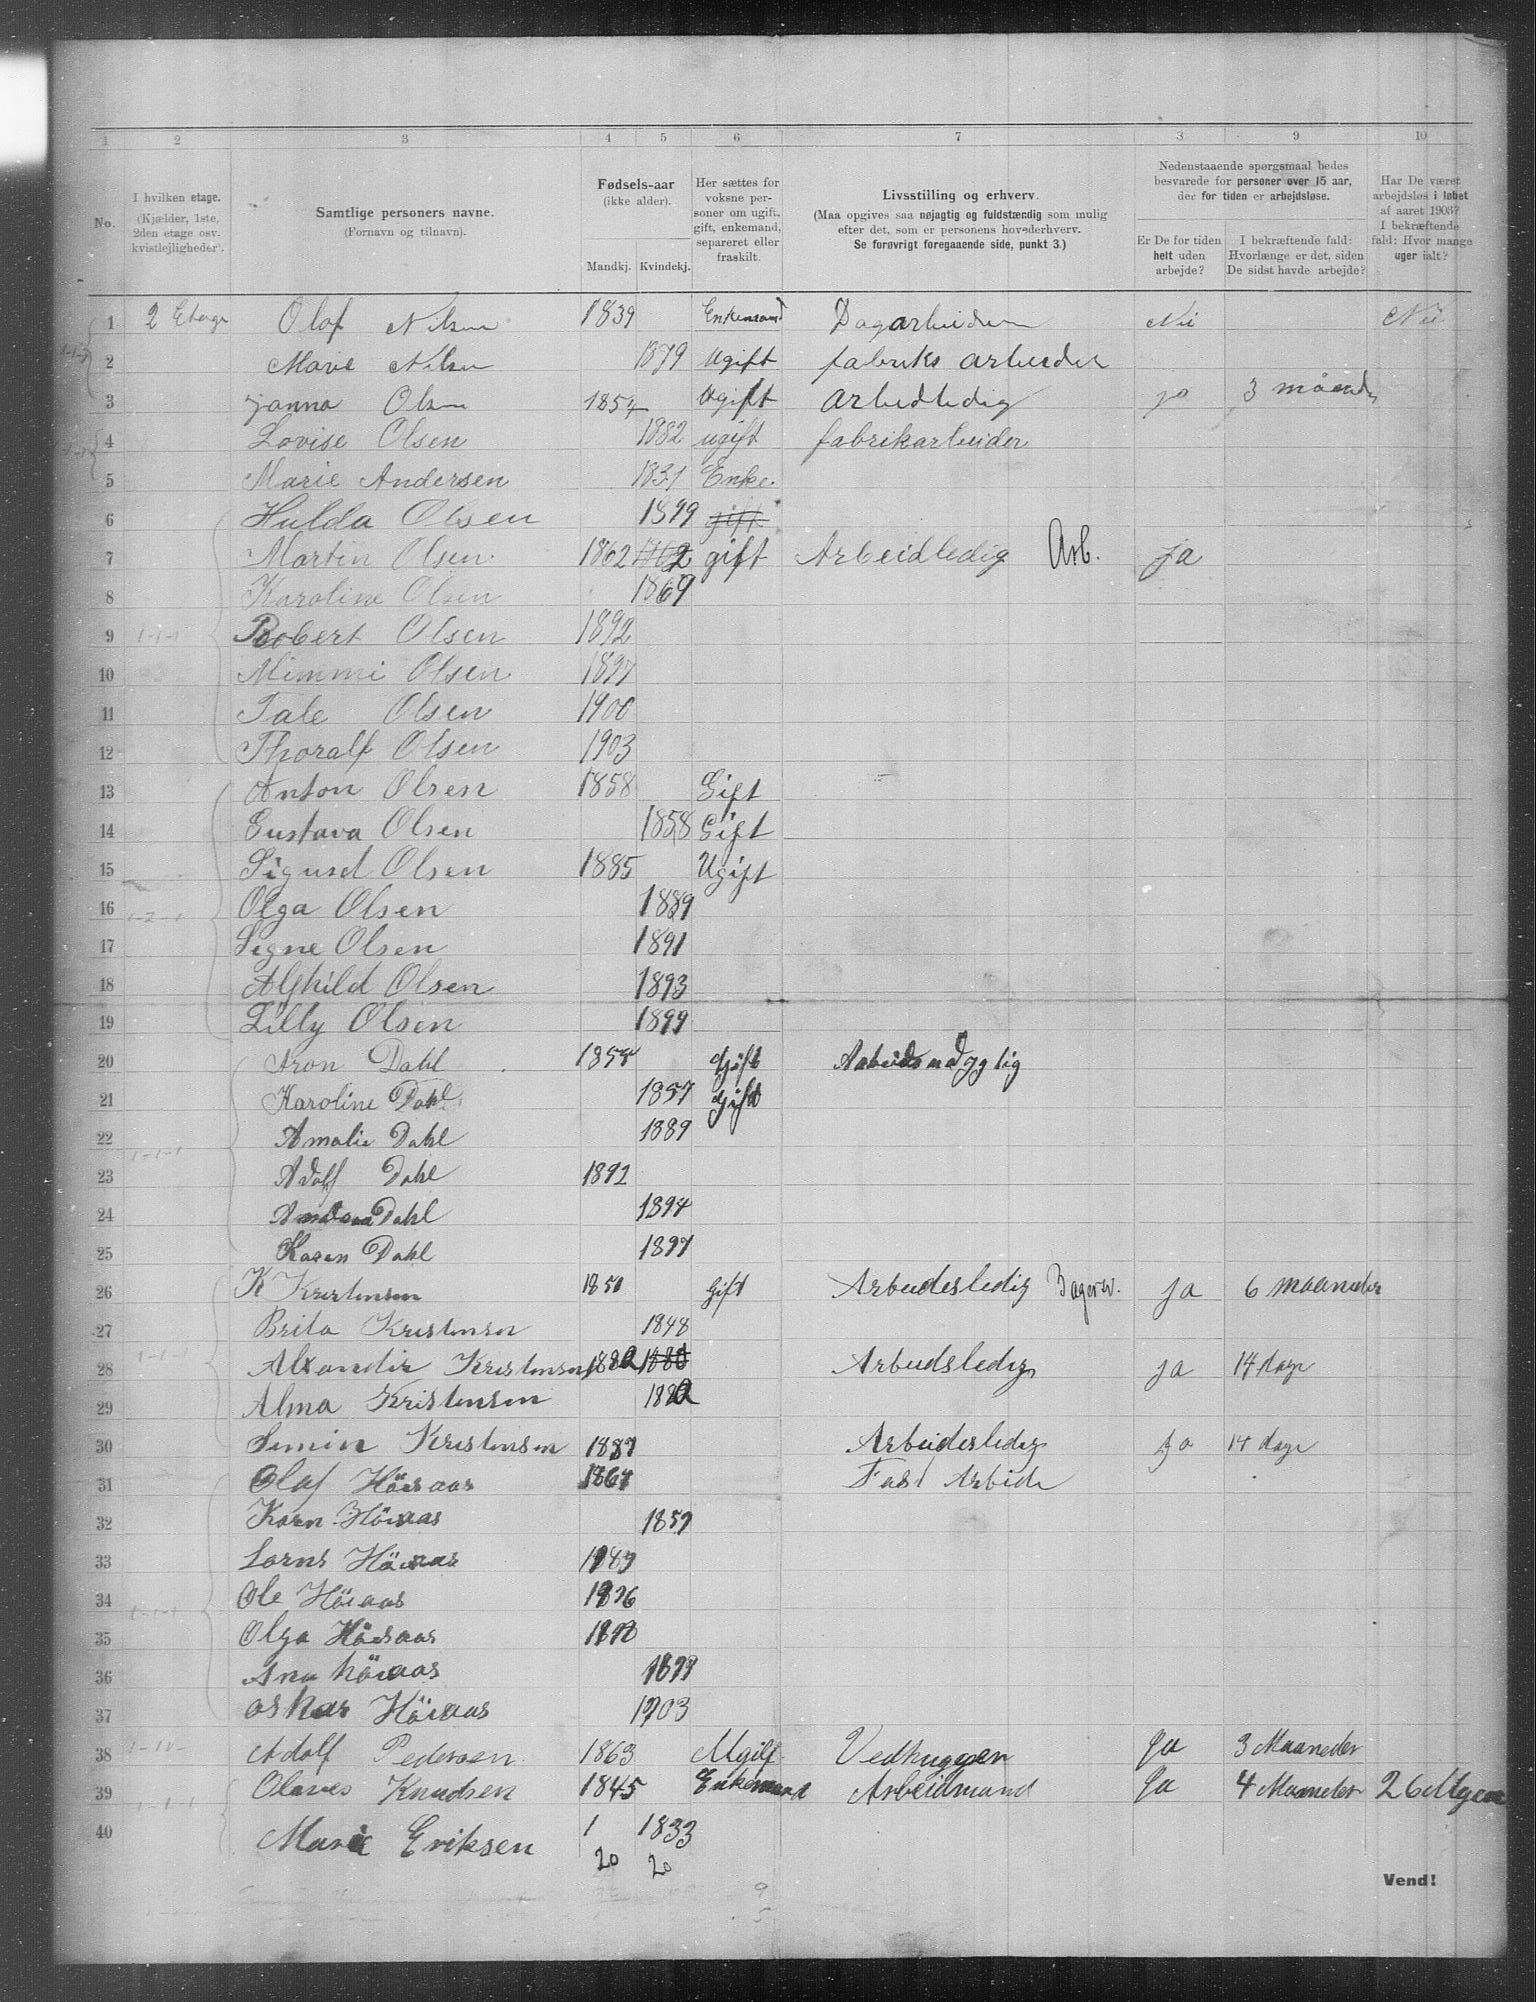 1 2 3 4 5 6 7 3 9 10
No.
I hvilken etage.
(Kjælder, 1ste,
2den etage osv.
kvistlejligheder).
Samtlige personers navne.
(Fornavn og tilnavn).
Fødsels-aar
(ikke alder).
Mandkj. Kvindekj.
Her sættes for
voksne per-
soner om ugift,
gift, enkemand,
separeret eller
fraskilt.
Livsstilling og erhverv.
(Maa opgives saa nøjagtig og fuldstændig som mulig
efter det, som er personens hovederhverv.
Se forøvrigt foregaaende side, punkt 3.)
Nedenstaaende spørgsmaal bedes
besvarede for personer over 15 aar,
der for tiden er arbejdsløse.
Er De for tiden
helt uden
arbejde?
I bekræftende fald:
Hvorlænge er det, siden
De sidst havde arbejde?
Har De været
arbejdsløs i løbet
af aaret 1903?
I bekræftende
fald: Hvor mange
uger ialt?
1 2 Etage Olaf Nilsen 1839 Enkemand Dagarbeider Nei Nei
2 Marie Nilsen 1879 Ugift fabriks arbeider
3 Olsen 1854 Ugift Arbedledig ja 3 måneder
4 Lovise Olsen 1882 ugift fabrikarbeider
5 Marie Andersen 1831 Enke
6 Hulda Olsen 1899 gift
7 Martin Olsen 1862 1862 gift Arbeidledig Arb. ja
8 Karoline Olsen 1869
9 1-1-1 Robert Olsen 1892
10 Mimmi Olsen 1897
11 Tale Olsen 1900
12 Thoralf Olsen 1903
13 Anton Olsen 1858 Gift
14 Gustava Olsen 1858 Gift
15 Sigurd Olsen 1885 Ugift
16 1-2-1 Olga Olsen 1889
17 Signe Olsen 1891
18 Alfhild Olsen 1893
19 Lilly Olsen 1899
20 Aron Dahl 1854 Gift
21 Karoline Dahl 1857 Gift
22 1-1-1 Amalie Dahl 1889
23 Adolf Dahl 1892
24 Dahl 1894
25 Karen Dahl 1897
26 K Kristensen 1850 Gift Arbeidesledig ja 6 maaneder
27 Brita Kristensen 1848
28 1-1-1 Alxander Kristensen 1882 1880 Arbeidsledig ja 14 dage
29 Alma Kristensen 1882
30 Simin Kristensen 1887 Arbeidesledig ja 14 dage
31 Olaf Höisaas 1864 Fast Arbide
32 Karn Höisaas 1859
33 Höisaas
34 1-1-1 Ole Höisaas
35 Olga Höisaas
36 Ana höisaas
37 oskar Höisaas 1903
38 Adolf Pedersen 1863 Ugift Vedhugger Ja 3 Maaneder
39 1-1-1 Olaves Knudsen 1845 Enkemand Arbeidmand Ja 4 Maaneder 26 Ugen
40 Marie Eriksen 1 1833
20 20
Vend!
9
5